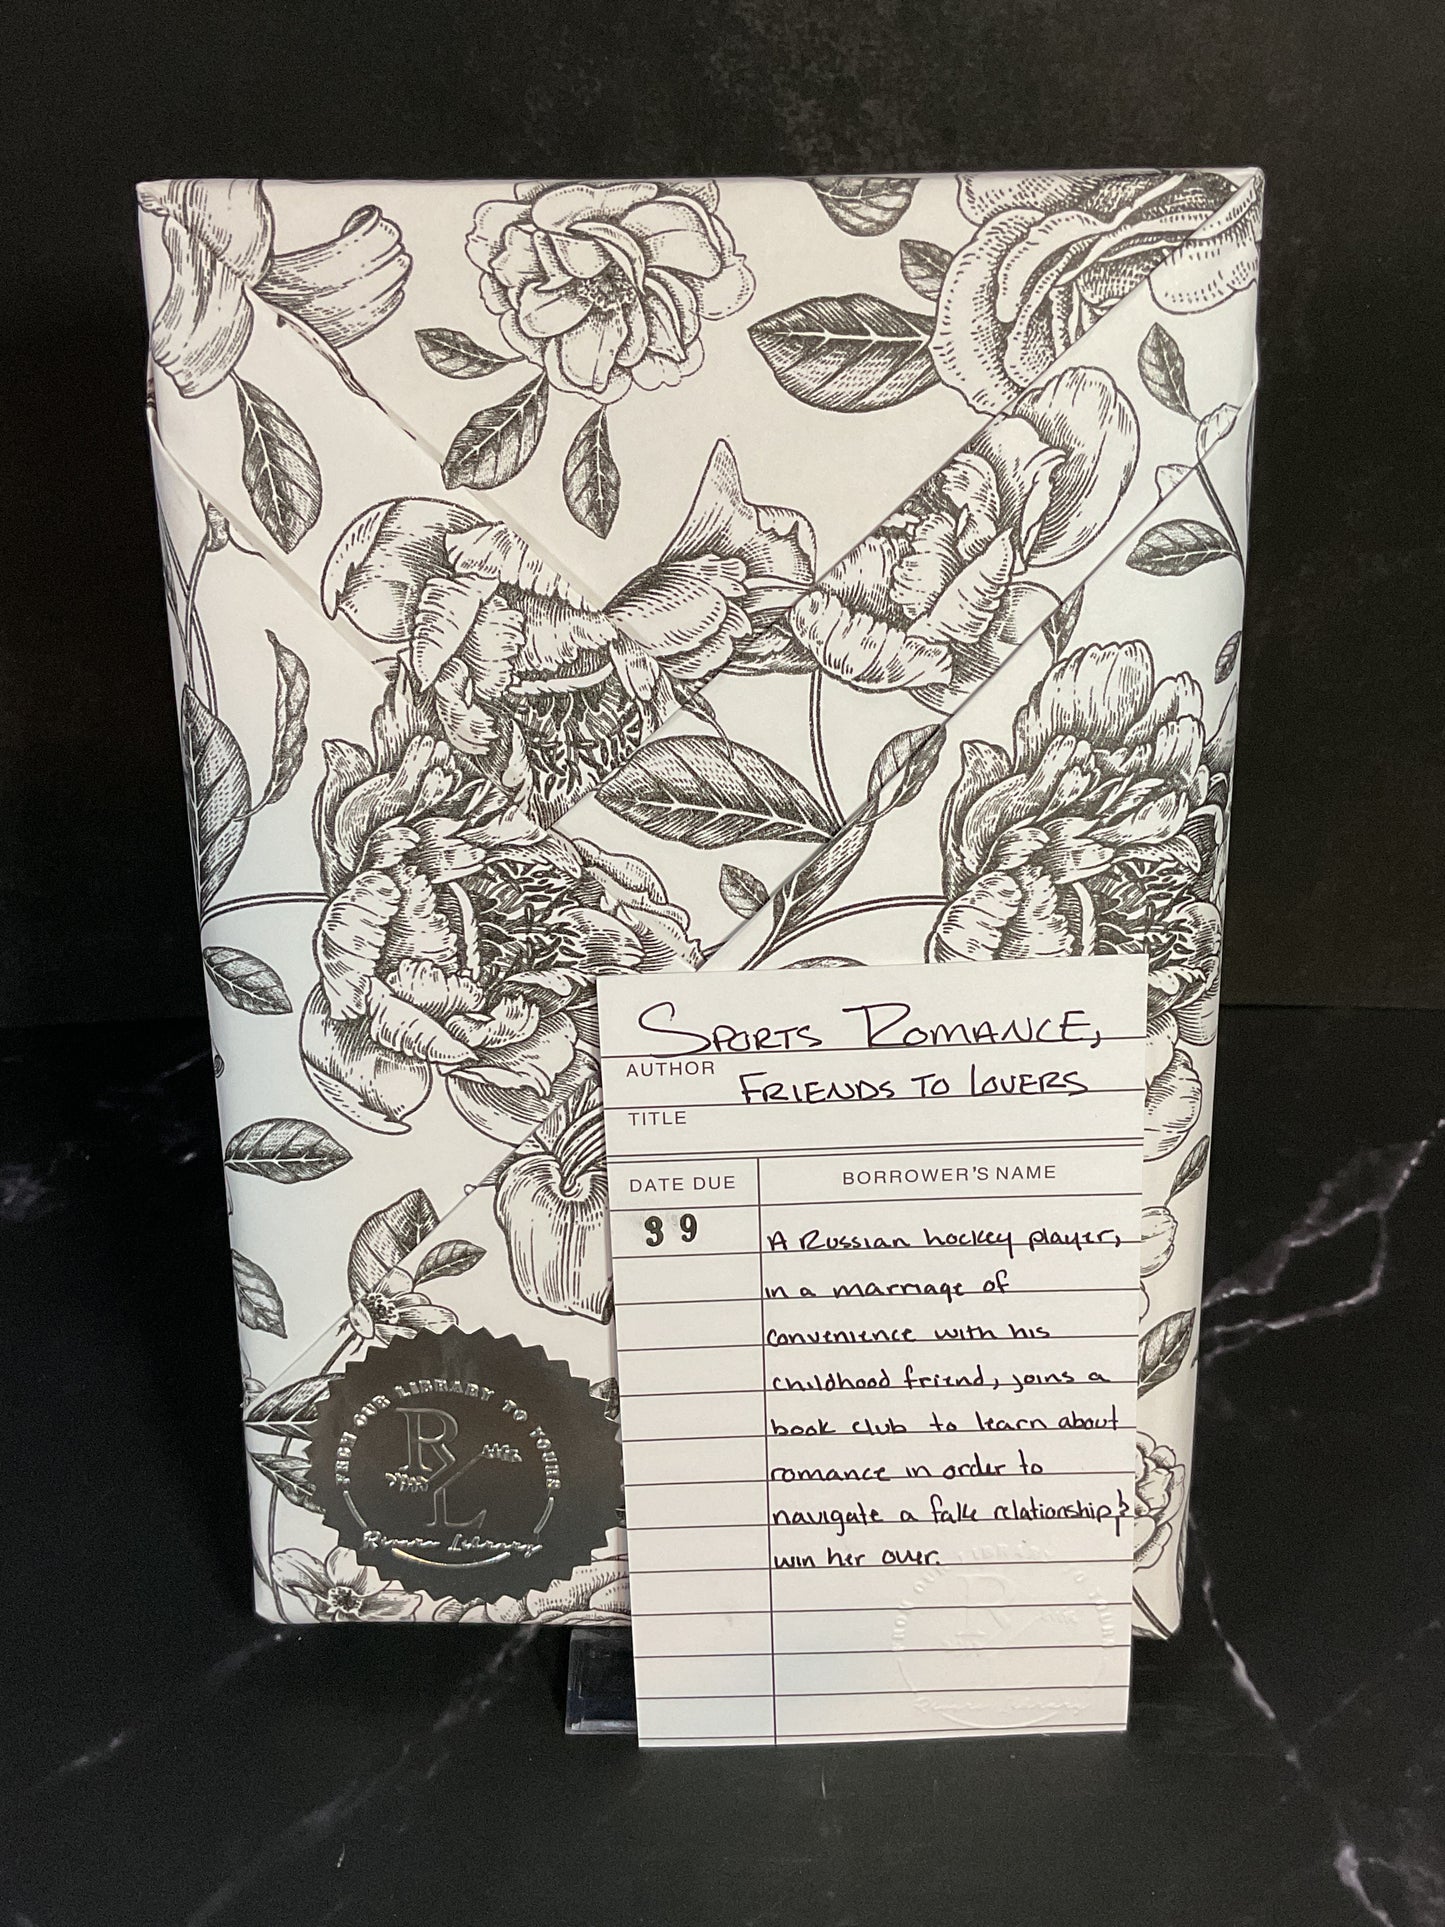 SPORTS ROMANCE,
AUTHOR FRIENDS TO LOVERS
TITLE
DATE DUE BORROWER'S NAME
39 A Russian hockey player,
in a marriage of
convenience with his
childhood friend, joins a
book club to learn about
romance in order to
navigate a fake relationship &
win her over.
FROM OUR LIBRARY TO YOURS
RL
FROM OUR LIBRARY TO YOURS
RL